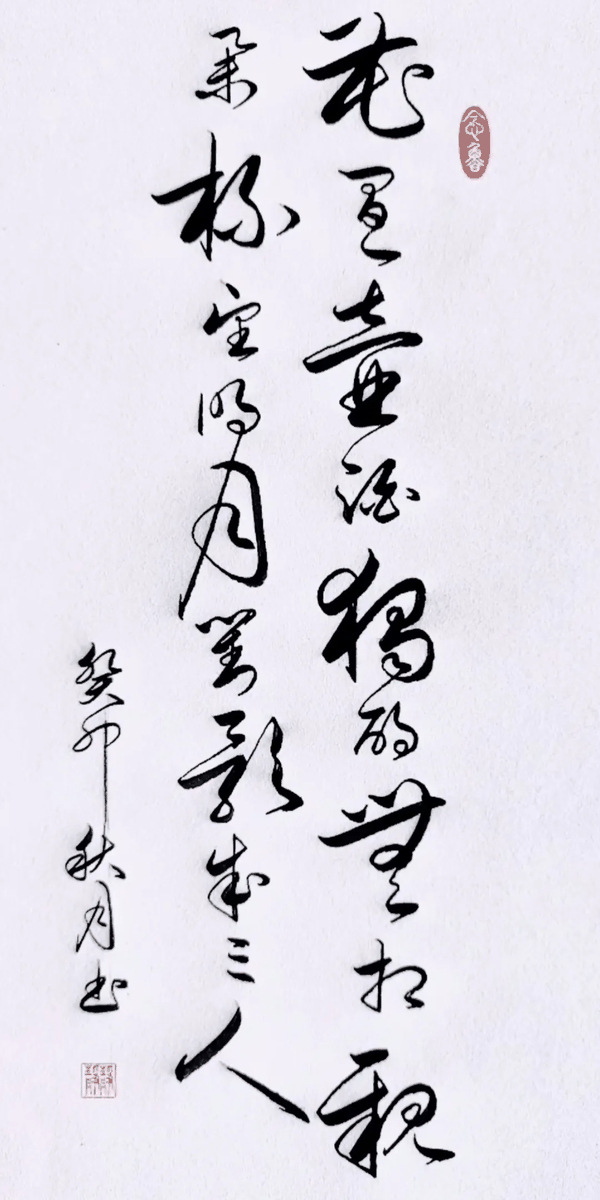 念魯
花間一壺酒獨酌無相親
舉杯望明月對影成三人
癸卯秋月书